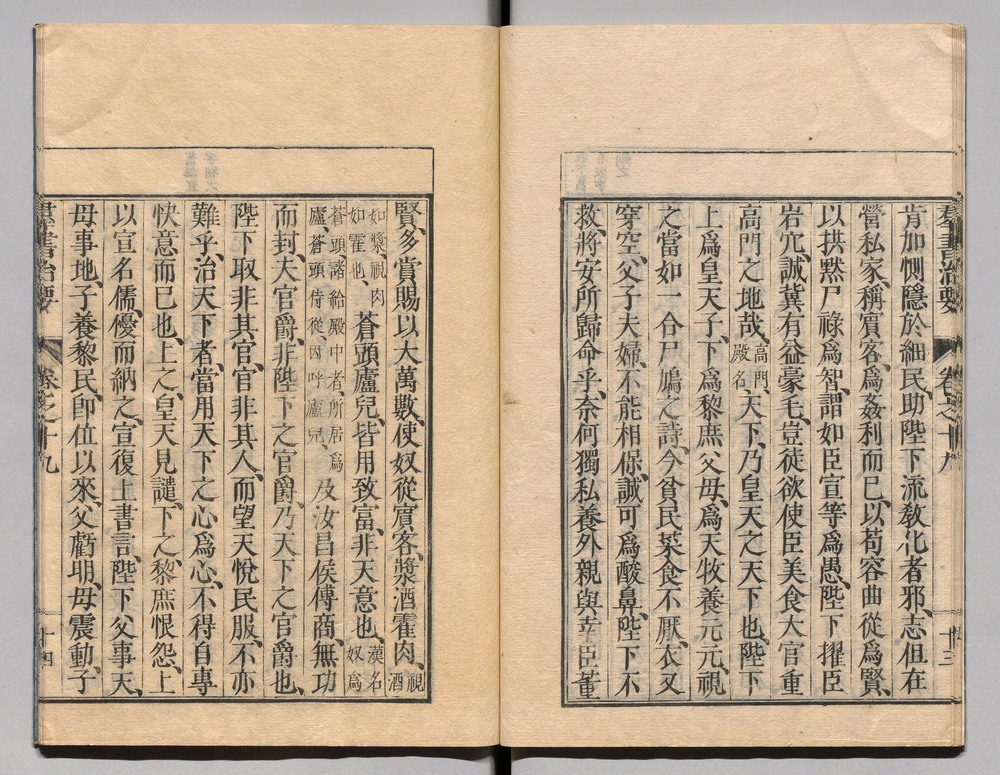 肯加惻隱於細民、助陛下流敎化者邪、志但在
營私家、稱賓客、爲姦利而已、以苟容曲從爲賢、
以拱黙尸祿爲智、謂如臣宣等爲愚、陛下擢臣
岩穴、誠冀有益豪毛、豈徒欲使臣美食大官重
高門之地哉、高門、殿名、天下、乃皇天之天下也、陛下
上爲皇天子、下爲黎庶父母、爲天牧養元元、視
之當如一、合尸鳩之詩、今貧民菜食不厭、衣又
穿空、父子夫婦、不能相保、誠可爲酸鼻、陛下不
救、將安所歸命乎、奈何獨私養外親與幸臣董
羣書治要 卷之十九 十三
賢、多賞賜以大萬數、使奴從賓客、漿酒霍肉、視酒
如漿、視肉如霍也、蒼頭廬兒、皆用致富、非天意也、漢名奴爲
蒼頭諸給殿中者、所居爲廬、蒼頭侍從、因呼廬兒、及汝昌侯傅商、無功
而封、夫官爵、非陛下之官爵、乃天下之官爵也、
陛下取非其官、官非其人、而望天悅民服、不亦
難乎、治天下者、當用天下之心爲心、不得自專
快意而已也、上之、皇天見譴、下之、黎庶恨怨、上
以宣名儒、優而納之、宣復上書言、陛下父事天、
母事地、子養黎民、卽位以來、父虧明、母震動、子
羣書治要 卷之十九 十四